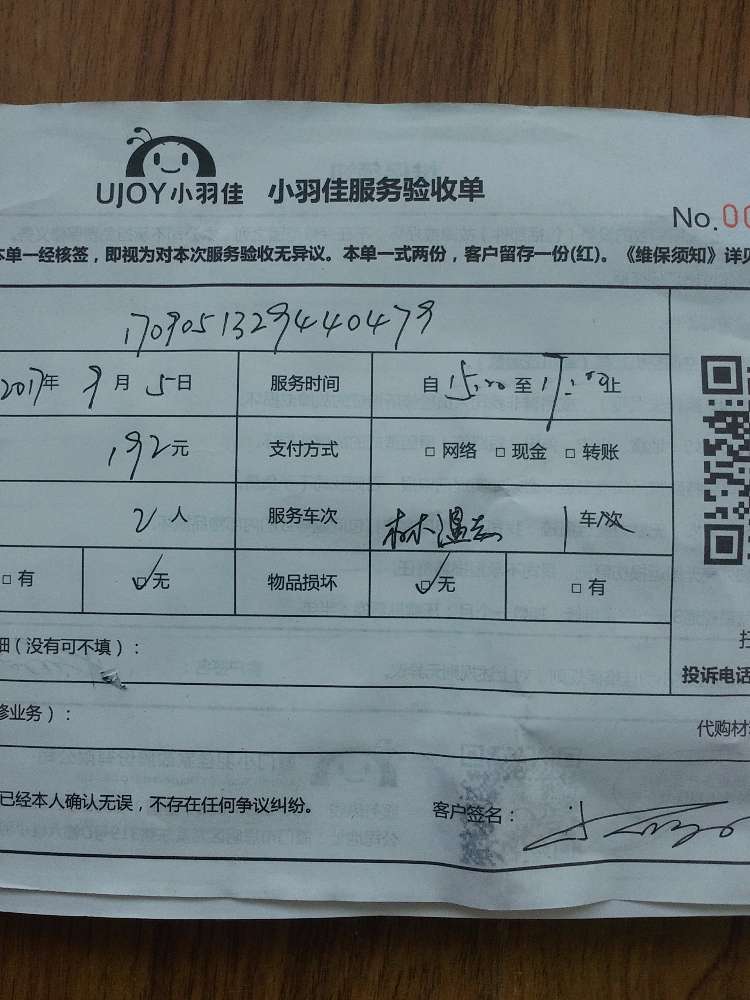 UJOY小羽佳 小羽佳服务验收单
No.00
本单一经核签，即视为对本次服务验收无异议。本单一式两份，客户留存一份(红)。《维保须知》详见
1709051329440479
2017年 9月 5日 服务时间 自 15:00 至 17:00 止
192元 支付方式 □ 网络 □ 现金 □ 转账
2人 服务车次 林温志 1车/次
□ 有 ☑无 物品损坏 ☑无 □ 有
细（没有可不填）：
投诉电话
修业务）：
代购材
已经本人确认无误，不存在任何争议纠纷。 客户签名：